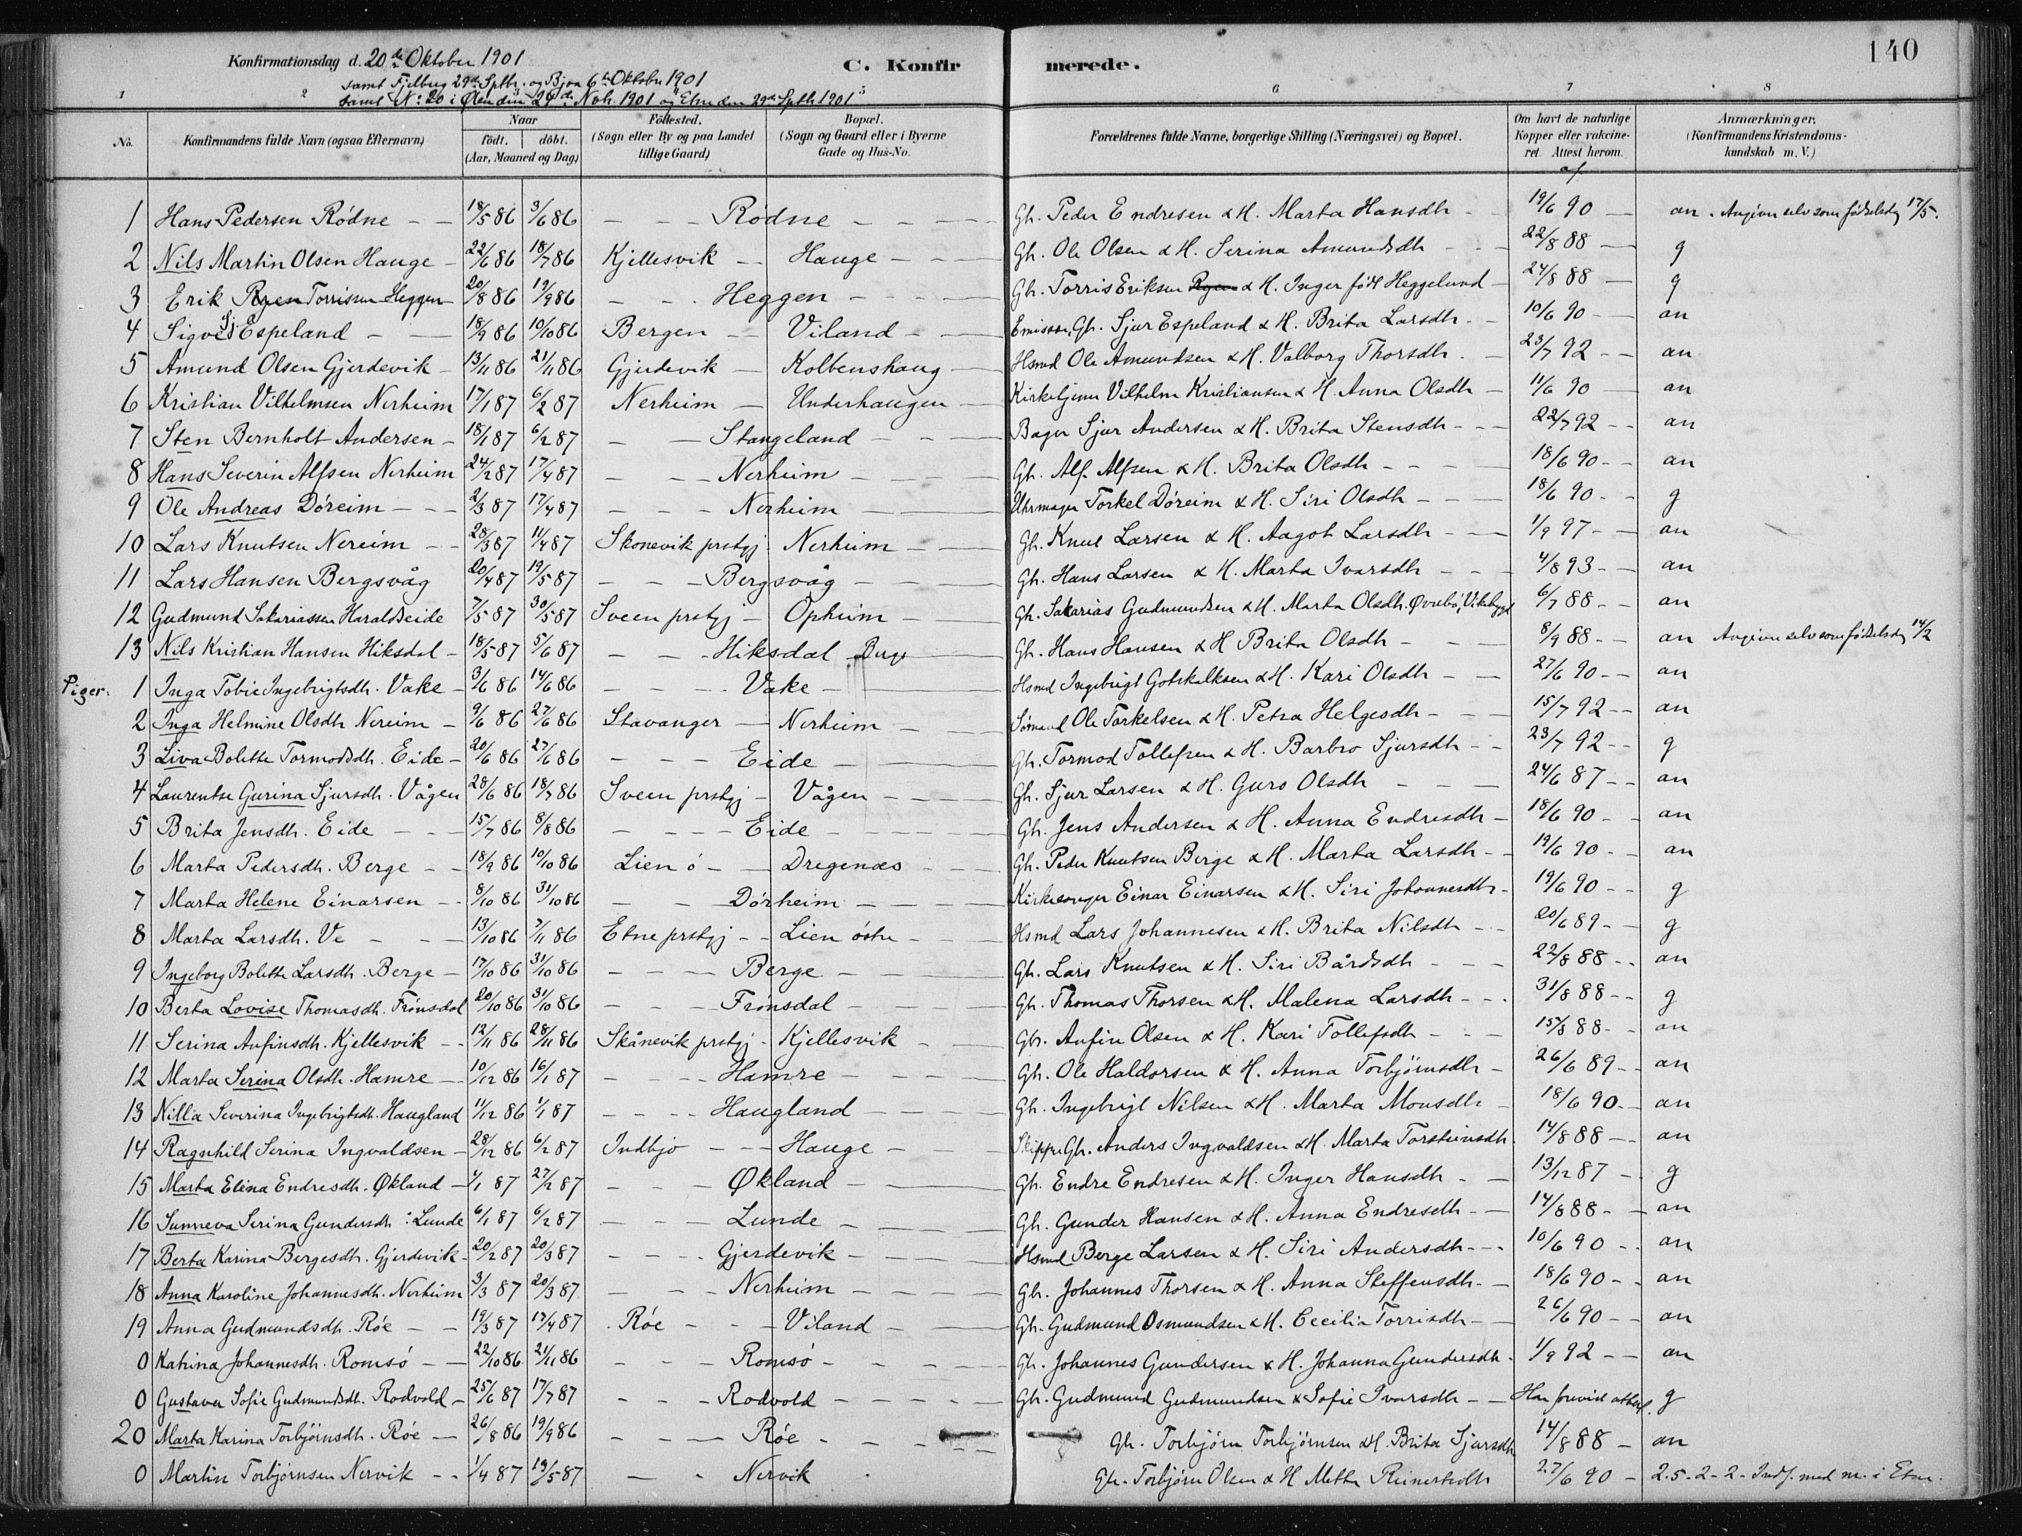 140
Konfirmationsdag d. 20de Oktober 1901
C. Konfirmerede.
samt Fjelberg 29de Septbr. og Bjoa 6te Oktober 1901
samt N: 20 i Ølen den 24de Novb. 1901 og Etne den 29de Septb 1901
1 2 3 5 6 7 8
No. Konfirmandens fulde Navn (ogsaa Efternavn) Naar födt. döbt. (Aar, Maaned og Dag) Födested. (Sogn eller By og paa Landet tillige Gaard) Bopæl. (Sogn og Gaard eller i Byerne Gade og Hus-No. Forældrenes fulde Navne, borgerlige Stilling (Næringsvei) og Bopæl. Om havt de naturlige Kopper eller vaccineret. Attest herom. Anmærkninger. (Konfirmandens Kristendomskundskab m. V.)
af
1 Hans Pedersen Rødne 18/5 86 3/6 86 Rødne Gh. Peder Endresen & H. Marta Hansdh 19/6 90 an. Angiver selv som fødselsdag 17/5.
2 Nils Martin Olsen Hauge 22/6 86 18/7 86 Kjellesvik Hauge Gh. Ole Olsen & H. Serina Amundsdh 22/8 88 g
3 Erik Torrisen Heggen 20/8 86 19/9 86 Heggen Gh. Torris Eriksen & H. Inger født Heggelund 24/8 88 g
4 Sigvei Espeland 18/9 86 10/10 86 Bergen Viland Emissær, Gh. Sjur Espeland & H. Brita Larsdh 10/6 90 an
5 Amund Olsen Gjerdevik 13/11 86 21/11 86 Gjerdevik Kolbenshaug Hsmd Ole Amundsen & H. Valborg Thorsdh 23/7 92 an
6 Kristian Vilhelmsen Nerheim 17/1 87 6/2 87 Nerheim Underhaugen Kirketjener Vilhelm Kristiansen & H. Anna Olsdh 11/6 90 an
7 Sten Bernholt Andersen 18/1 87 6/2 87 Stangeland Bager Sjur Andersen & H. Brita Stensdh 22/7 92 an
8 Hans Severin Alfsen Nerheim 24/2 87 17/4 87 Nerheim Gh. Alf. Alfsen & H. Brita Olsdh 18/6 90 an
9 Ole Andreas Døreim 2/3 87 17/4 87 Nerheim Uhrmager Torkel Døreim & H. Siri Olsdh 18/6 90 g
10 Lars Knutsen Nereim 28/3 87 11/4 87 Skonevik prstgj Nerheim Gh. Knut Larsen & H. Aagot Larsdh 1/9 97 an
11 Lars Hansen Bergsvåg 20/4 87 19/5 87 Bergsvåg Gh. Hans Larsen & H. Marta Ivarsdh 4/8 93 an
12 Gudmund Sakariassen Haraldseide 7/5 87 30/5 87 Sveen prstgj Opheim Gh. Sakarias Gudmundsen & H. Marta Olsdh. Øvrebø, Vikebygd 6/7 88 an
13 Nils Kristian Hansen Hiksdal 18/5 87 5/6 87 Hiksdal Gh. Hans Hansen & H Brita Olsdh 8/9 88 an Angiver selv som fødselsdag 14/2
Piger.
1 Inga Tobie Ingebrigtsdh. Vake 3/6 86 14/6 86 Vake Hsmd Ingebrigt Gotskalksen & H. Kari Olsdh 27/6 90 an
2 Inga Helmine Olsdh Nereim 9/6 86 27/6 86 Stavanger Nerheim Sømand Ole Torkelsen & H. Petra Helgesdh 15/7 92 an
3 Liva Bolette Tormodsdh. Eide 20/6 86 27/6 86 Eide Gh. Tormod Tollefsen & H. Barbro Sjursdh 23/7 92 g
4 Laurentse Gurina Sjursdh. Vågen 28/6 86 18/7 86 Sveen prstgj Vågen Gh. Sjur Larsen & H. Guro Olsdh 24/6 87 an
5 Brita Jensdh. Eide 15/7 86 8/8 86 Eide Gh. Jens Andersen & H. Anna Endresdh 18/6 90 an
6 Marta Pedersdh. Berge 18/9 86 10/10 86 Lien ö Dregenæs Gh. Peder Knutsen Berge & H. Marta Larsdh 19/6 90 an
7 Marta Helene Einarsen 8/10 86 31/10 86 Dørheim Kirkesanger Einar Einarsen & H. Siri Johannesdh 19/6 90 g
8 Marta Larsdh. Ve 13/10 86 7/11 86 Etne prstgj Lien östre Hsmd Lars Johannesen & H. Brita Nilsdh 20/6 89 g
9 Ingeborg Bolette Larsdh. Berge 17/10 86 31/10 86 Berge Gh. Lars Knutsen & H. Siri Bårdsdh 22/8 88 an
10 Berta Lovise Thomasdh. Frønsdal 20/10 86 31/10 86 Frønsdal Gh. Thomas Thorsen & H. Malena Larsdh 31/8 88 g
11 Serina Anfinsdh. Kjellesvik 12/11 86 28/11 86 Skånevik prstgj Kjellesvik Gbr. Anfin Olsen & H. Kari Tollefsdh 15/8 88 an
12 Marta Serina Olsdh. Hamre 10/12 86 16/1 87 Hamre Gh. Ole Haldorsen & H. Anna Torbjørnsdh 26/6 89 an
13 Nilla Severina Ingebrigtsdh. Haugland 11/12 86 1/1 87 Haugland Gh. Ingebrigt Nilsen & H. Marta Monsdh 18/6 90 an
14 Ragnhild Serina Ingvaldsen 28/12 86 6/2 87 Indbjo Hauge Skipper Gh. Anders Ingvaldsen & H. Marta Torsteinsdh. 14/8 88 an
15 Marta Elina Endresdh. Økland 4/1 87 27/2 87 Økland Gh. Endre Endresen & H. Inger Hansdh 13/12 87 g
16 Sunneva Serina Gundersdh. Lunde 6/1 87 6/2 87 Lunde Gh. Gunder Hansen & H. Anna Endresdh 14/8 88 an
17 Berta Karina Bergesdh. Gjerdevik 20/2 87 20/3 87 Gjerdevik Hsmd Berge Larsen & H. Siri Andersdh 10/6 90 an
18 Anna Karoline Johannesdh. Nerheim 3/3 87 20/3 87 Nerheim Gh. Johannes Thorsen & H. Anna Steffensdh 18/6 90 an
19 Anna Gudmundsdh. Røe 19/3 87 17/4 87 Røe Viland Gh. Gudmund Osmundsen & H. Cecilia Torrisdh 26/6 90 an
0 Katrina Johannesdh. Romsø 22/10 86 21/11 86 Romsø Gh. Johannes Gundersen & H. Johanna Gundersdh 1/9 92 an
0 Gustava Sofie Gudmundsdh. Rodvold 25/6 87 17/7 87 Rodvold Gh. Gudmund Gudmundsen & Sofie Ivarsdh Har forevist attest. g
20 Marta Karina Torbjørnsdh. Røe 26/8 86 19/9 86 Røe Gh. Torbjørn Torbjørnsen & H. Brita Sjursdh 14/8 88 an
0 Martin Torbjørnsen Nervik 1/4 87 19/5 87 Nervik Gh. Torbjørn Olsen & H Mette Reinertsdh 27/6 90 2.5-2-2- Indf. med m. i Etne.